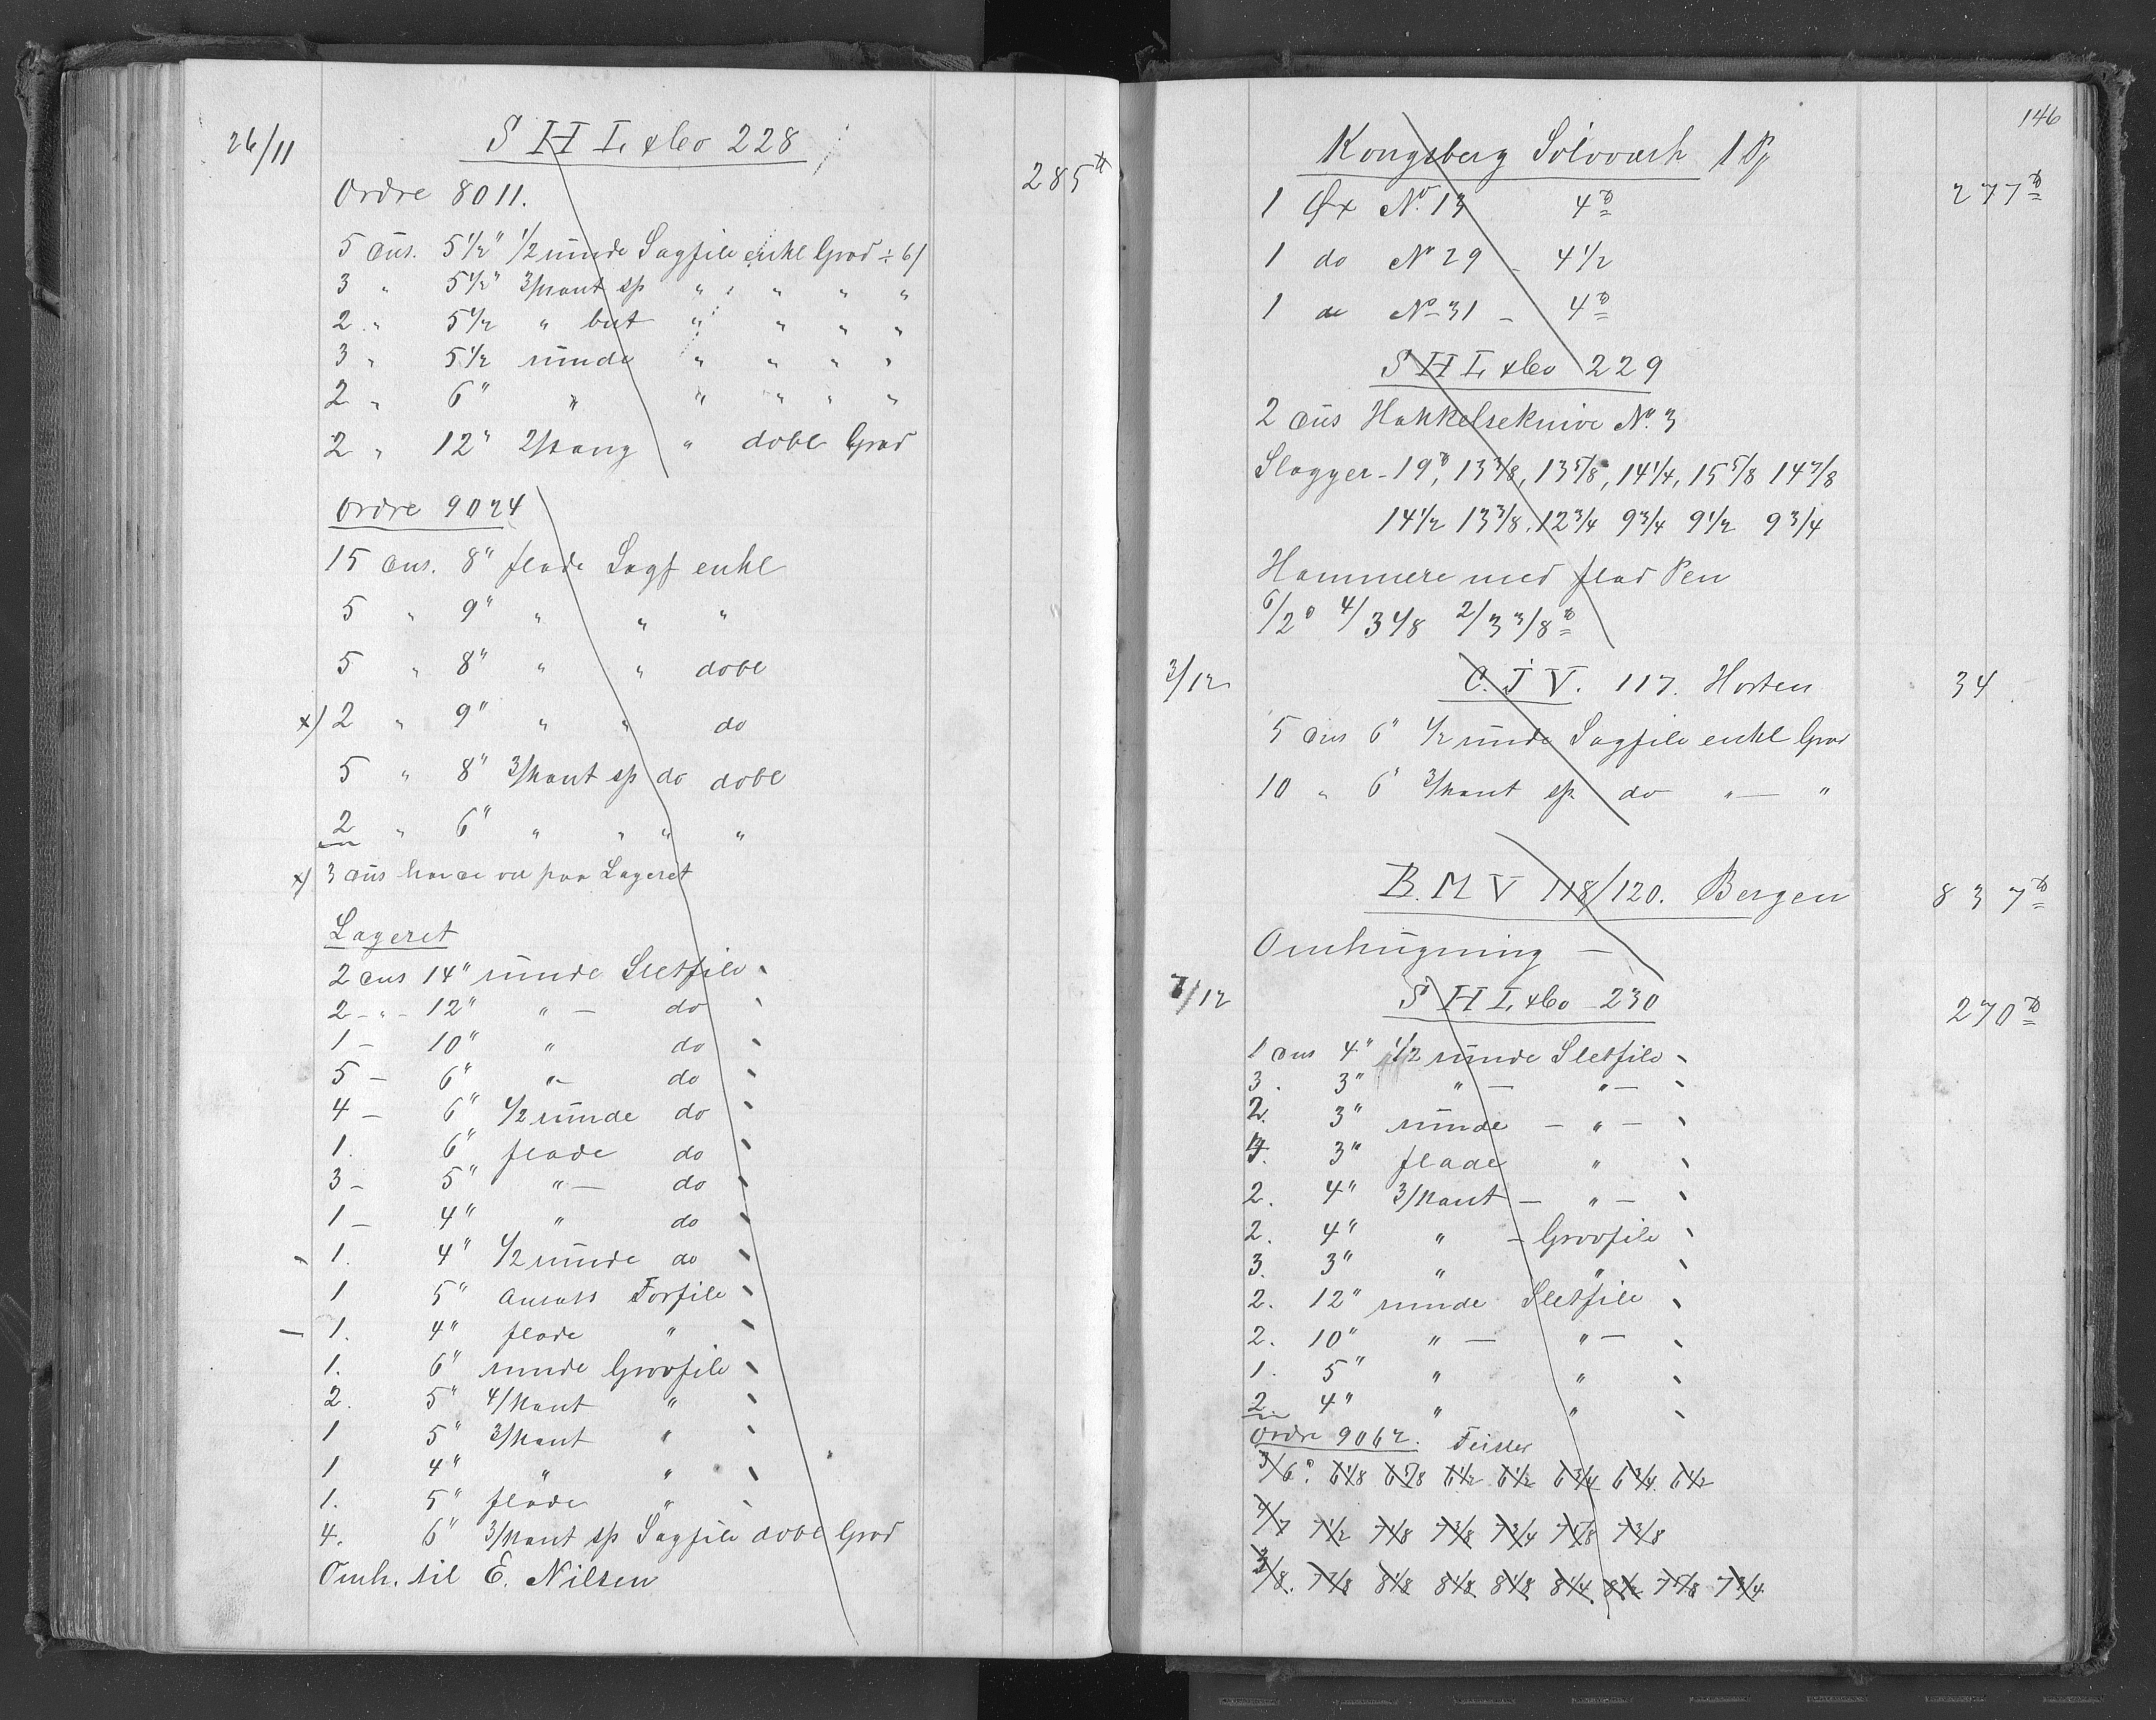 26/11 S H L & Co 228 285 ℔
Ordre 8011.
5 dus. 5 1/2" 1/2 runde Sagfile enkl Grad ÷ 6/
3 " 5 1/2" 3/kant sp " " " "
2 " 5 1/2 " but " " " "
3 " 5 1/2 runde " " " "
2 " 6" " " " " "
2 " 12" " dobl Grad
Ordre 9024
15 dus. 8" flade Sagf enkl
5 " 9" " " "
5 " 8" " " dobl
x) 2 " 9" " " do
5 " 8" 3/kant sp do dobl
2 " 6" " " " "
x) 3 dus have vi paa Lageret
Lageret
2 dus 14" runde Sletfile
2 - " - 12" " - do
1 - 10" " do
5 - 6" " - do
4 - 6" 1/2 runde do
1. 6" flade do
3 - 5" " - do
1 - 4" " do
- 1. 4" 1/2 runde do
1 5" ansats Forfile
- 1. 4" flade "
1. 6" runde Grovfile
2. 5" 4/kant "
1 5" 3/kant "
1 4" " "
1. 5" flade "
4. 6" 3/kant sp Sagfile dobl Grad
Omh. til E. Nilsen
146
Kongsberg Sölvværk 1 277 ℔
1 Øx No. 13 4 ℔
1 do No 29 - 4 1/2
1 do No 31 - 4 ℔
S H L & Co 229
2 dus Hakkelseknive No. 3
Slægger - 19 ℔, 13 3/8, 13 5/8, 14 1/4, 15 5/8 14 7/8
14 1/2 13 3/8. 12 3/4 9 3/4 9 1/2 9 3/4
Hammere med flad Pen
6/2 ℔ 4/3 1/8 2/3 3/8 ℔
3/12 C. J V. 117. Horten 34
5 dus 6" 1/2 runde Sagfile enkl Grad
10 " 6" 3/kant sp do " — "
B. M V 118/120. Bergen 837 ℔
Omhugning —
7/12 S H L & Co 230 270 ℔
1 dus 4" 1/2 runde Sletfile
3. 3" " — " —
2. 3" runde — " —
3" flade "
2. 4" 3/kant — " —
2. 4" " - Grovfile
3. 3" " "
2. 12" runde Sletfile
2. 10" " — " —
1. 5" " "
2 4" " "
Ordre 9062.
3/6 ℔ 6 1/8 6 7/8 6 1/2 6 1/2 6 3/4 6 3/4 6 1/2
4/7 7 1/2 7 1/8 7 3/8 7 3/4 7 5/8 7 3/8
3/8. 7 7/8 8 1/8 8 1/8 8 1/8 8 1/4 8 1/2 7 5/8 7 3/4